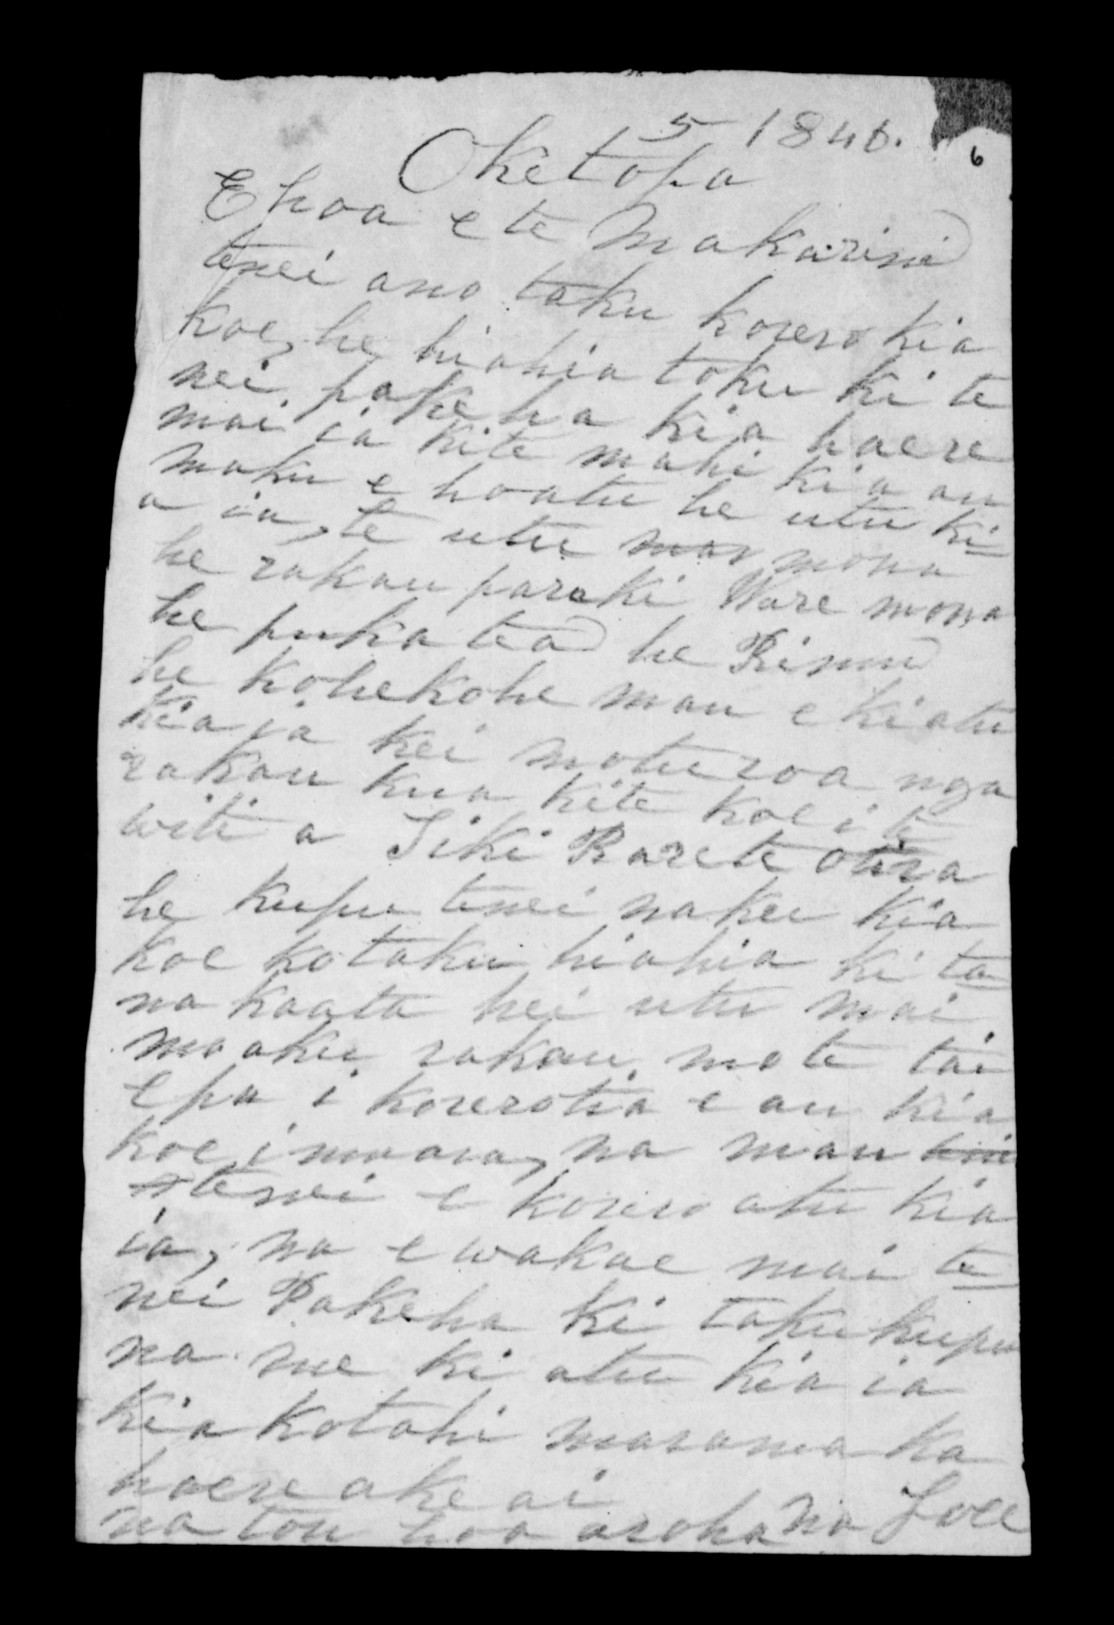 5 1846.
6
Oketopa
E hoa e te Makarini
tenei ano taku korero kia
koe, he hiahia toku ki te
nei pakeha kia haere
mai ia ki te mahi kia au
maku e hoatu he utu ki
a ia, te utu mona
he rakau paraki Ware mona
he puka tea he Rimu
he kohekohe mau e kiatu
kia ia kei moturoa nga
rakau kua kite koe i te
witi a Tiki Rarete otira
he kupu tenei naku kia
koe ko taku hiahia ki ta
na kaata hei utu mai
mo aku rakau, mo te tai
epa i korerotia e au kia
koe i mua ra, na mau
tenei e korero atu kia
ia, na e wakae mai te
nei Pakeha ki taku kupu
na me ki atu kia ia
kia kotahi marama ka
haere ake ai
na tou hoa aroha na